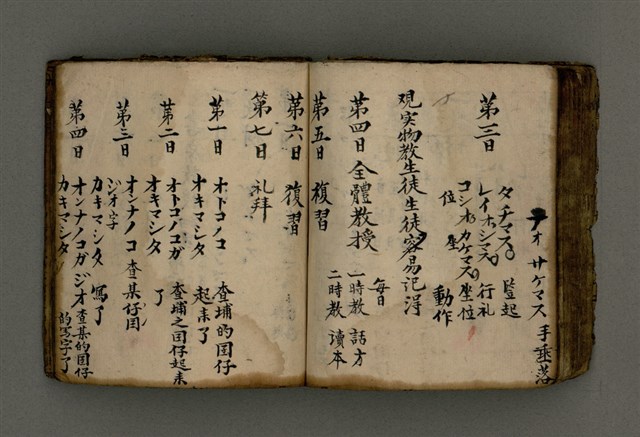 テオ サゲマス 手垂落
第三日 タチマス 竪起
レイヲシマス 行礼
コシヲカケマス 坐位 動作
位 坐
観実物教生徒生徒容易記得
第四日 全體教授 毎日
一時教 話方
二時教 讀本
第五日 復習
第六日 復習
第七日 礼拜
第一日 オトコノコ 查埔的囝仔
オキマシタ 起来了
第二日 オトコノコガ 查埔之囝仔起来
オキマシタ 了
第三日 オンナノコ 查某仔囝
ジオ 字
カキマシタ 寫了
第四日 オンナノコガ ジオ 查某的囝仔
カキマシタ 的写字了